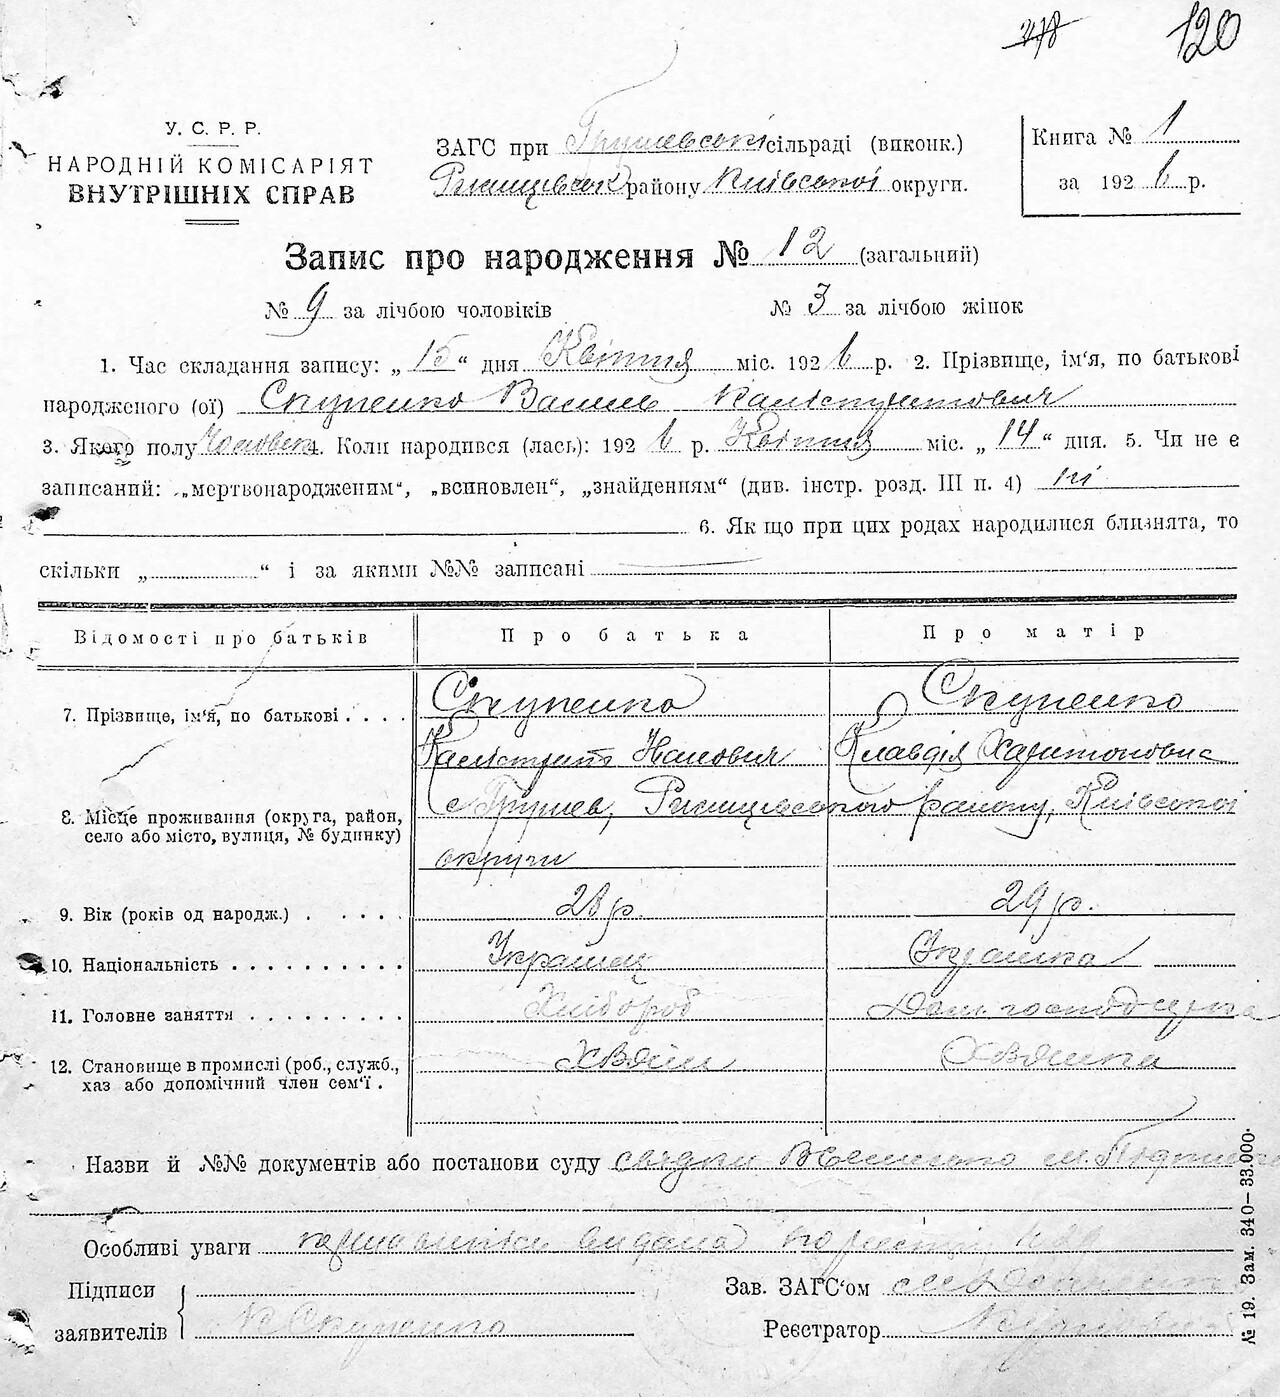 120
У. С. Р. Р.
НАРОДНІЙ КОМІСАРІЯТ
ВНУТРІШНІХ СПРАВ
ЗАГС при Грушевські сільраді (виконк.)
району Київської округи.
Книга № 1
за 1926 р.
Запис про народження № 12 (загальний)
№ 9 за лічбою чоловіків № 3 за лічбою жінок
1. Час складання запису: „15“ дня Квітня міс. 1926 р. 2. Прізвище, ім'я, по батькові
народженого (ої) Скупенко Василь Калістратович
3. Якого полу Чоловік 4. Коли народився (лась): 1926 р. Квітня міс. „14“ дня. 5. Чи не є
записаний: „мертвонародженим“, „всиновлен“, „знайденням“ (див. інстр. розд. III п. 4) ні
6. Як що при цих родах народилися близнята, то
скільки „ “ і за якими №№ записані
Відомості про батьків Про батька Про матір
7. Прізвище, ім'я, по батькові . . . . Скупенко Скупенко
Калістрат Клавдія Харитоновна
8. Місце проживання (округа, район, село або місто, вулиця, № будинку) с Грушев, району, Київської
округи
9. Вік (років од народж.) . . . . . 28 р. 29 р.
10. Національність . . . . . . . . . . Українець Українка
11. Головне заняття . . . . . . . . . Хлібороб Дом. господарка
12. Становище в промислі (роб., служб., хаз або допомічний член сем'ї . Хазяїн Хазяйка
Назви й №№ документів або постанови суду свідки
Особливі уваги видана
Підписи
заявителів К Скупенко
Зав. ЗАГС'ом
Реєстратор
№ 19. Зам. 340—33.000.